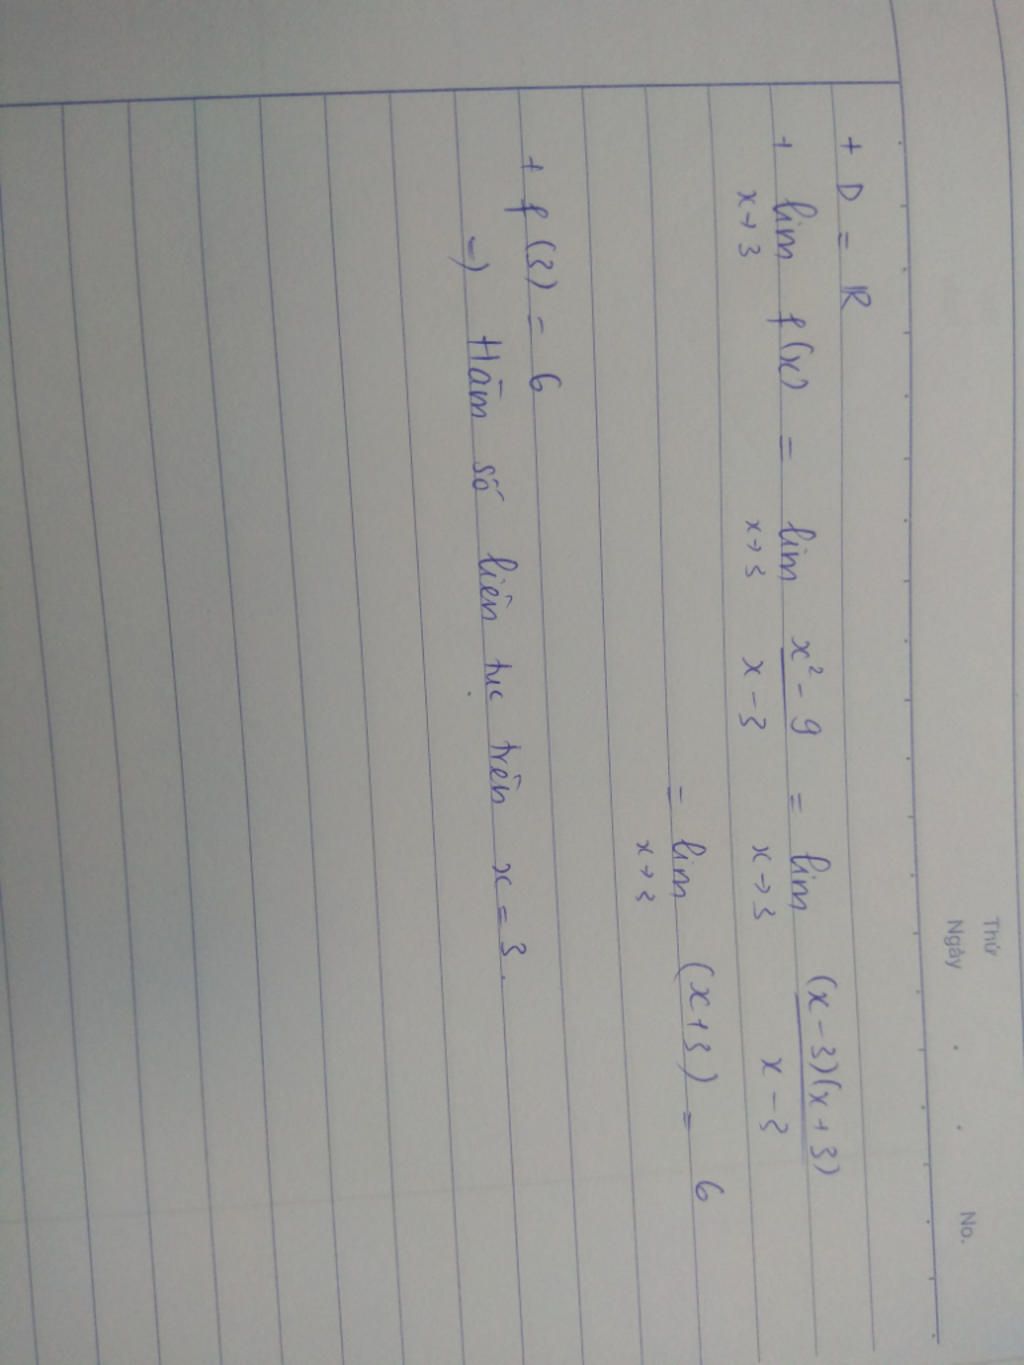 Thứ
Ngày . . No.
+ D = R
+ lim f(x) = lim x² - 9 = lim (x-3)(x+3)
x→3 x→3 x - 3 x→3 x - 3
= lim (x+3) = 6
x→3
+ f(3) = 6
→ Hàm số liên tục trên x = 3.